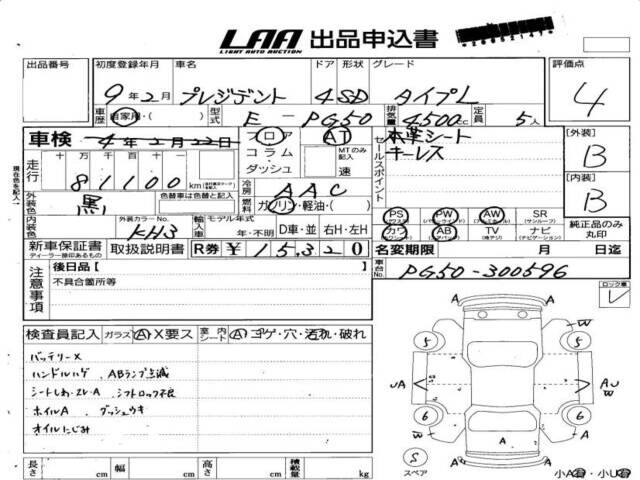 LAA 出品申込書
LIGHT AUTO AUCTION
出品番号 初度登録年月 車名 ドア 形状 グレード 評価点
9年2月 プレジデント 4 SD Aタイプ L 4
車歴 自家用・( ) 型式 E-PG50 排気量 4500cc 定員 5人
車検 4年2月22日 フロア AT セールスポイント 本革シート [外装] B
走行 十 万 千 百 十 コラム・ダッシュ MTのみ記入 速 キーレス
81100km
冷房 AAC [内装] B
外装色 黒 色替車は色替と記入 燃料 ガソリン・軽油・( )
PS PW AW SR 純正品のみ丸印
(パワステ) (パワーウィンドウ) (アルミホイール) (サンルーフ)
内装色 外装カラーNo. KH3 輸入車 モデル年式 年・不明 D車・並 右H・左H
カワ AB TV ナビ
(エアバック) (ナビゲーション)
新車保証書 取扱説明書 R券 ¥15,320 名変期限 月 日迄
ディーラー捺印あるもの
注意事項 後日品[ ] 車台No. PG50-300596
不具合箇所等 ロック車 レ
現在色を記入
検査員記入 ガラス A・X要ス 室内シート A・コゲ・穴・汚れ・破れ
バッテリーX
ハンドルハゲ、ABランプ点滅
シートしわ・スレ・A シフトロック不良
ホイルA ダッシュウキ
オイルにじみ
A A W
5 5
UA A A U W
W
6 6
W A A W
S A
スペア A 小A・小U
長さ cm 幅 cm 高さ cm 積載量 kg